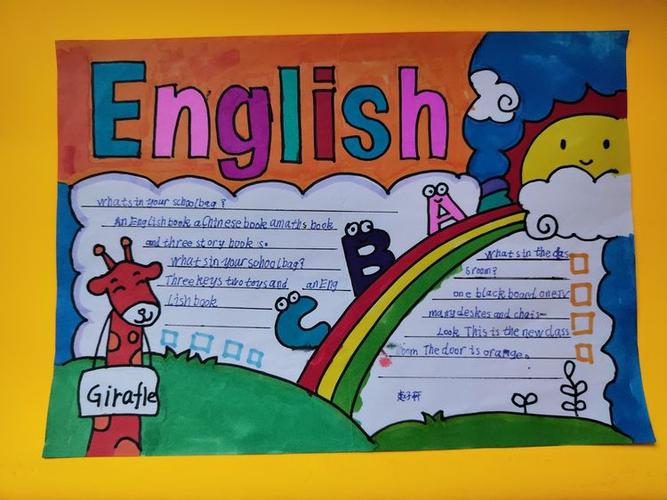 English
whats in your schoolbag?
An English book a Chinese book a maths book
and three story book s.
what's in your schoolbag?
Three keys two toys and an Eng
Lish book
A
B
C
Girafle
what's in the clas
sroom?
one black board one TV
many deskes and chais
Look This is the new class
room The door is orange.